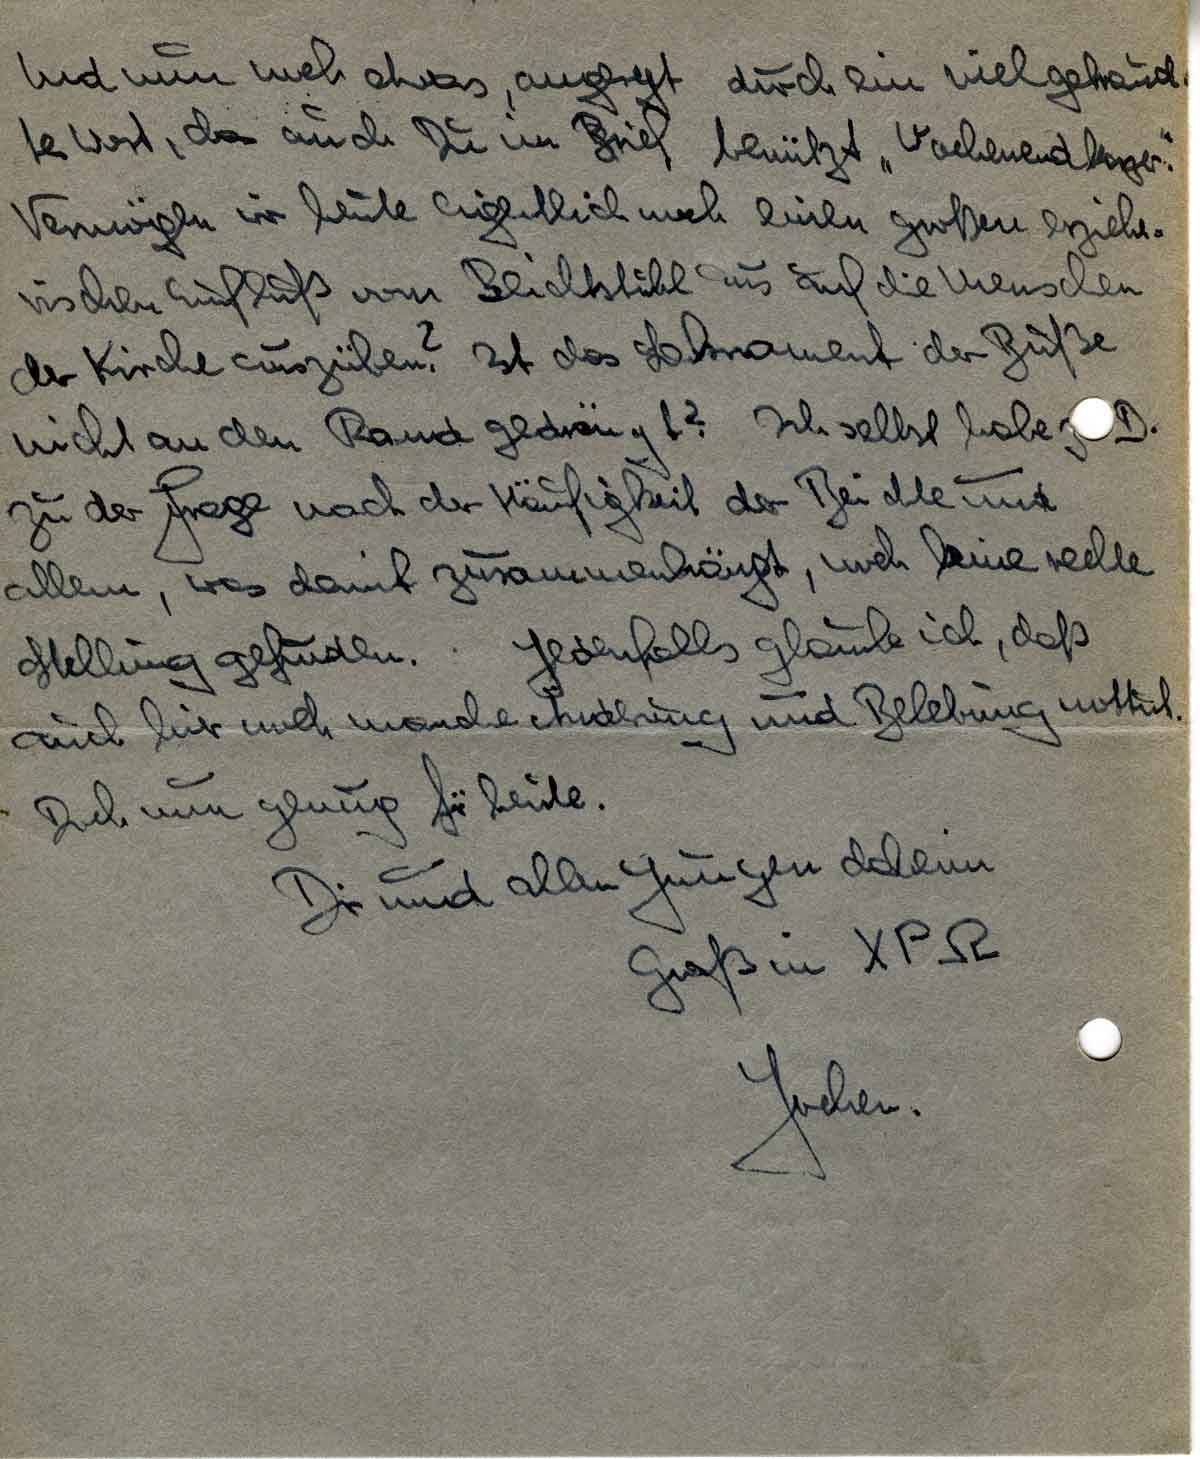 Und nun noch etwas, angeregt durch ein vielgebrauch-
tes Wort, das auch Du im Brief benützt „Wochenend
Vermögen wir heute eigentlich noch einen großen erziehe-
rischen Einfluß vom Beichtstuhl aus auf die Menschen
der Kirche auszuüben? Ist das Sakrament der Buße
nicht an den Rand gedrängt? Ich selbst habe z D.
zu der Frage nach der Häufigkeit der Beichte und
allem, was damit zusammenhängt, noch keine rechte
Stellung gefunden. Jedenfalls glaube ich, daß
auch hier noch manche Änderung und Belebung nottut.
Doch nun genug für heute.
Dir und allen Jungen daheim
Gruß in XPΩ
Jochen.